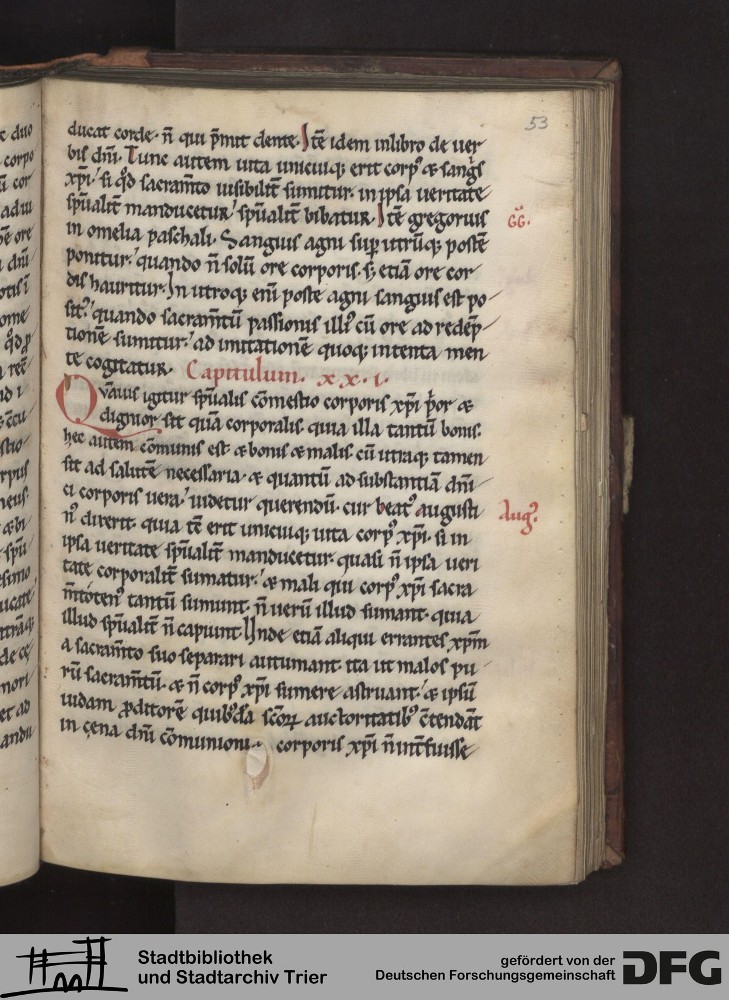 53
ducat corde. n̄ qui p̄mit dente. Itē idem inlibro de uer
bis dn̄i. Tunc autem uita unicuiq; erit corp᷒ & sangs
xp̄i. si qd sacram̄to uisibilit̄ sumitur. in ipsa ueritate
sp̄ualit̄ manducetur. sp̄ualit̄ bibatur. Itē gregorius
GG.
in omelia paschali. Sanguis agni sup utrūq; postē
ponitur. quando n̄ solū ore corporis. s; etiā ore cor
dis hauritur. In utroq; eni poste agni sanguis est po
sit᷒. quando sacram̄tū passionis illi᷒ cū ore ad redēp
tionē sumitur. ad imitationē quoq; intenta men
te cogitatur. Capitulum. xx.i.
Qvāuis igitur sp̄ualis cōmestio corporis xp̄i p̄or &
dignior sit quā corporalis. quia illa tantū bonis.
hec autem cōmunis est & bonis & malis. cū utraq; tamen
sit ad salutē necessaria. & quantū ad substantiā dn̄i
ci corporis uera. uidetur querendū. cur beat᷒ augusti
Aug᷒.
n᷒ dixerit. quia tē erit unicuiq; uita corp᷒ xp̄i. si in
ipsa ueritate sp̄ualit̄ manducetur. quasi n̄ ipsa ueri
tate corporalit̄ sumatur. & mali qui corp᷒ xp̄i sacra
m̄toten᷒ tantū sumunt. n̄ uerū illud sumant. quia
illud sp̄ualit̄ n̄ capiunt. Unde etiā aliqui errantes xp̄m
a sacram̄to suo separari autumant. ita ut malos pu
rū sacram̄tū. & n̄ corp᷒ xp̄i sumere astruant. & ipsū
iudam p̄ditorē quibdā scōꝝ auctoritatib᷒ c̄tendāt
in cena dn̄i cōmunioni corporis xp̄i n̄ int̄fuisse
c duo
corpo
cor
adui
ore
dn̄i
ome
corpus
neus.
& bi
sp̄u
simo
ucate
ntrāq;
de ce
mori
et ad
andu
Stadtbibliothek
und Stadtarchiv Trier
gefördert von der
Deutschen Forschungsgemeinschaft
DFG